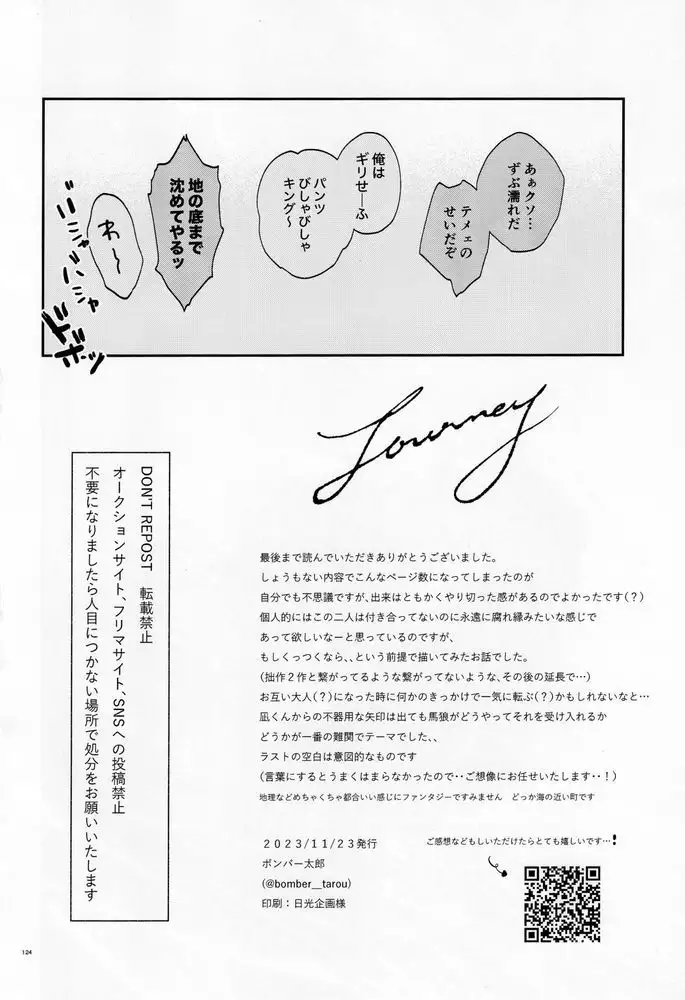 あぁクソ…
ずぶ濡れだ
テメェの
せいだぞ
俺は
ギリせーふ
パンツ
びしゃびしゃ
キング〜
地の底まで
沈めてやるッ
わ〜
ニシャバシャ
ドボーッ
Journey
最後まで読んでいただきありがとうございました。
しょうもない内容でこんなページ数になってしまったのが
自分でも不思議ですが、出来はともかくやり切った感があるのでよかったです(？)
個人的にはこの二人は付き合ってないのに永遠に腐れ縁みたいな感じで
あって欲しいなーと思っているのですが、
もしくっつくなら、、という前提で描いてみたお話でした。
(拙作２作と繋がってるような繋がってないような、その後の延長で…)
お互い大人(？)になった時に何かのきっかけで一気に転ぶ(？)かもしれないなと…
凪くんからの不器用な矢印は出ても馬狼がどうやってそれを受け入れるか
どうかが一番の難関でテーマでした、、
ラストの空白は意図的なものです
(言葉にするとうまくはまらなかったので‥ご想像にお任せいたします‥！)
地理などめちゃくちゃ都合いい感じにファンタジーですみません　どっか海の近い町です
DON'T REPOST　転載禁止
オークションサイト、フリマサイト、SNSへの投稿禁止
不要になりましたら人目につかない場所で処分をお願いいたします
２０２３/１１/２３発行
ボンバー太郎
(@bomber__tarou)
印刷：日光企画様
ご感想などもしいただけたらとても嬉しいです…！
124